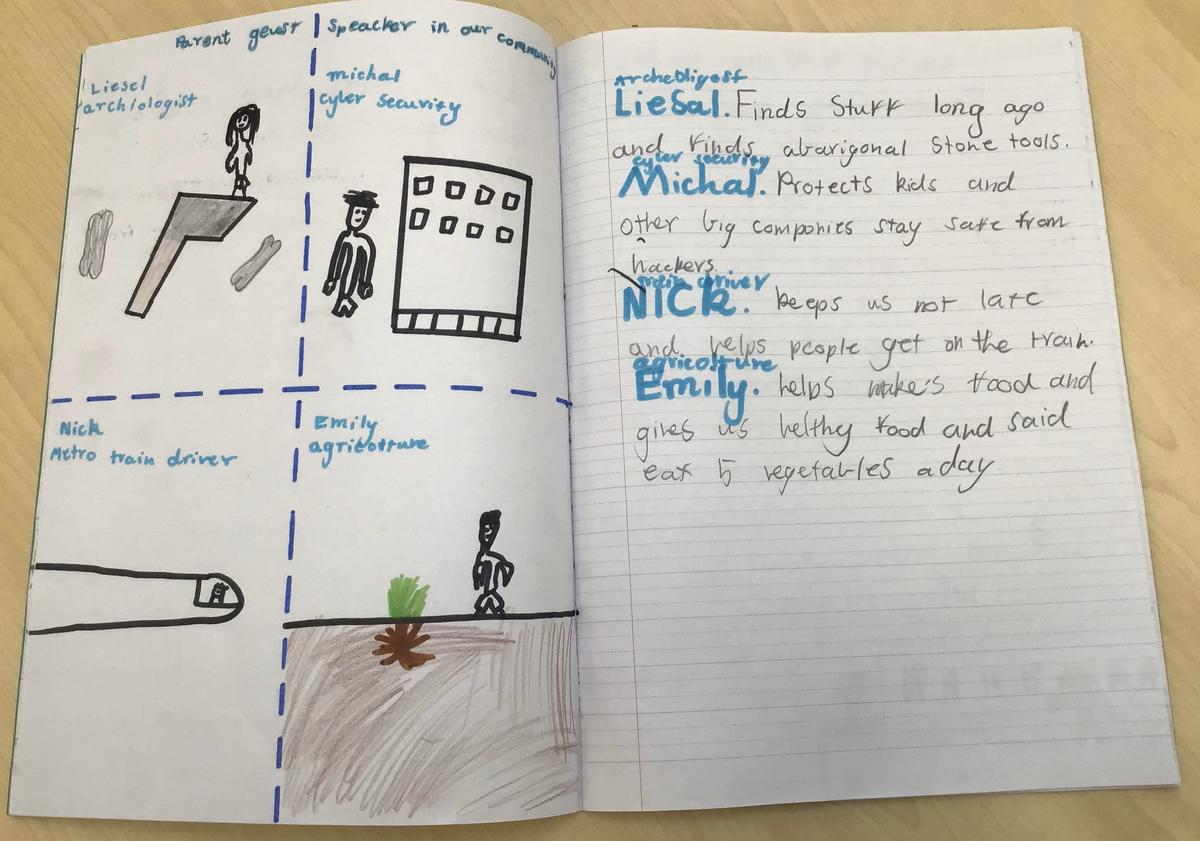 Parent geust | Speacker in our community
Liesel
archiologist
michal
cyber security
Nick
Metro train driver
Emily
agricolture
Archeoligest
Liesal. Finds Stuff long ago
and finds abarigonal Stone tools.
cyber security
Michal. Protects kids and
other big componies stay safe from
hackers.
train driver
NICK. keeps us not late
and helps people get on the train.
agricolture
Emily. helps make's food and
gives us helthy food and said
eat 5 vegetables a day